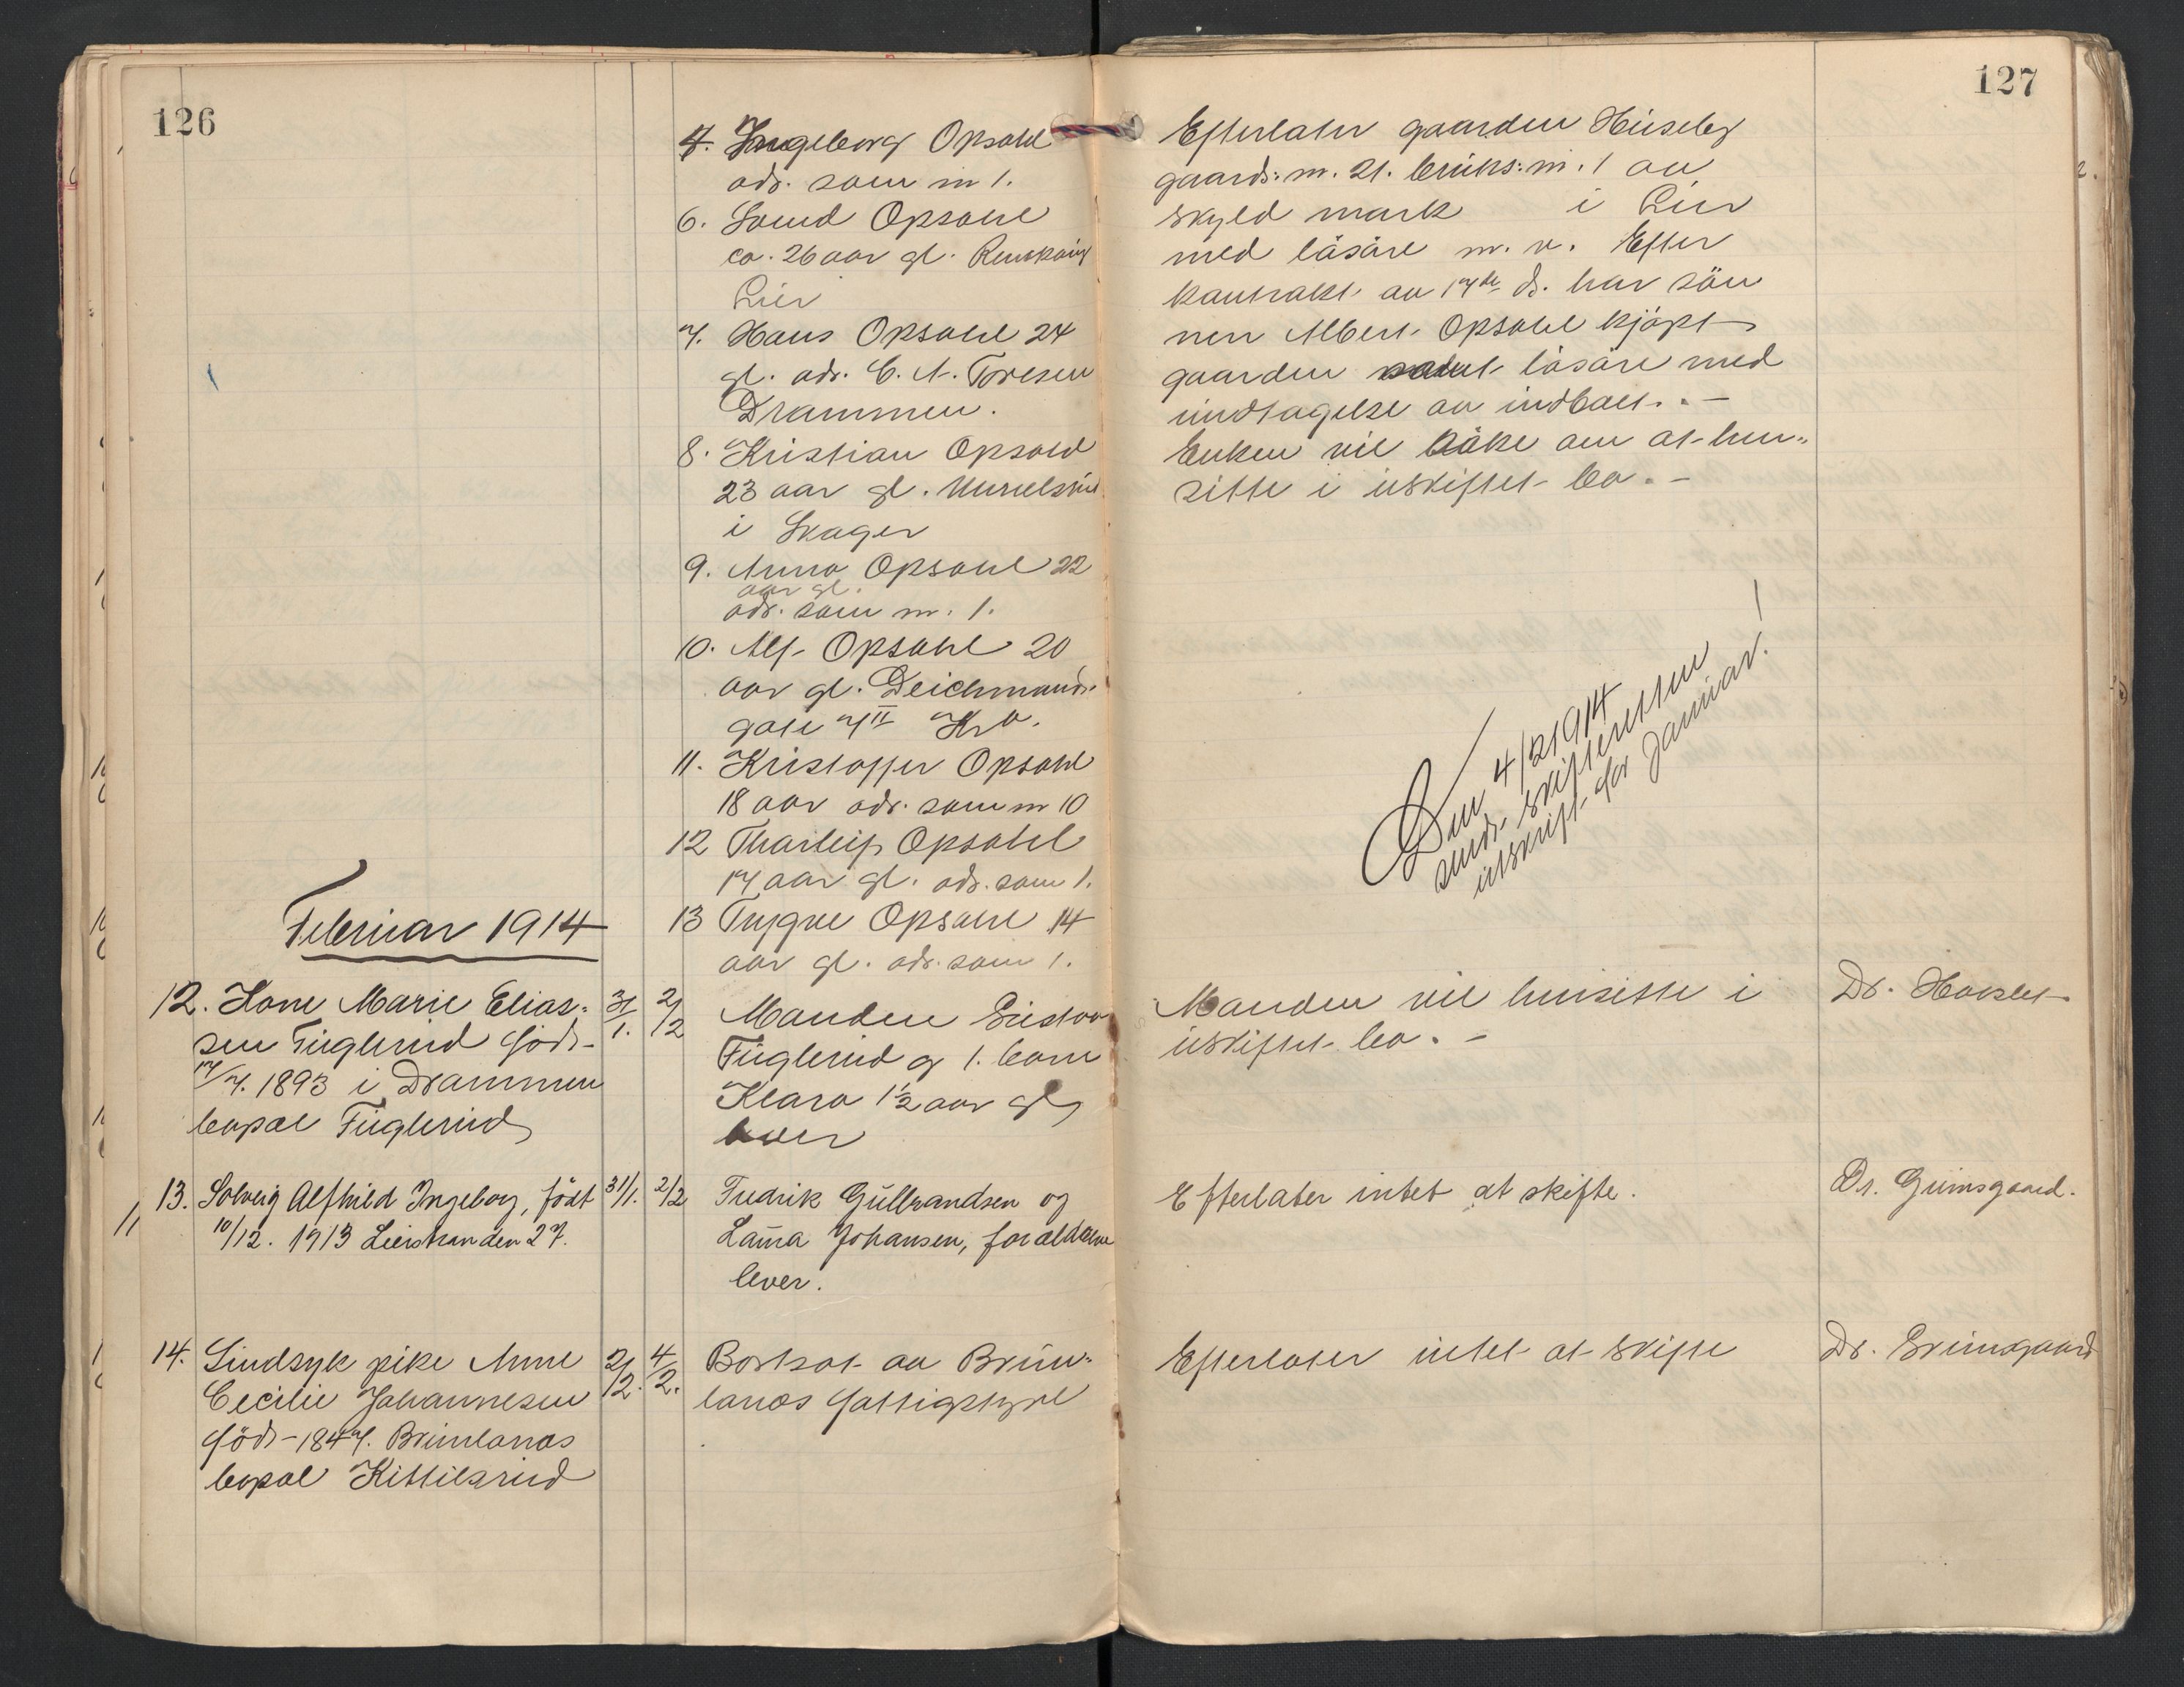 126
4. Ingeborg Opsahl
adr. som nr 1.
6. Opsahl
ca. 26 aar gl.
Lier
7. Hans Opsahl 24
gl. adr. C. A. Toresen
Drammen.
8. Kristian Opsahl
23 aar gl.
i Skoger
9. Anna Opsahl 22
aar gl.
adr. som nr. 1.
10. Alf Opsahl 20
aar gl. Deichmands-
gate 7 II Kr.a.
11. Kristoffer Opsahl
18 aar adr. som nr 10
12 Thorleif Opsahl
17 aar gl. adr. som 1.
13 Trygve Opsahl 14
aar gl. adr. som 1.
Februar 1914
12. Kone Marie Elias-
sen Fuglerud född
17/7. 1893 i Drammen
bopæl Fuglerud
31/1. 2/2
Manden Gustav
Fuglerud og 1. barn
Klara 1½ aar gl,
lever
13. Solveig Alfhild Ingeborg, födt
10/12. 1913 Lierstranden 27.
31/1. 2/2
Fredrik Gulbrandsen og
Laura Johansen, forældrene
lever.
14. Sindsyk pike Anne
Cecilie Johannesen
född 1847. Brunlanæs
bopæl Kittilsrud
2/2. 4/2.
Bortsat av Brun-
lanæs fattigstyre
127
Efterlater gaarden Huseby
gaards: nr. 21. bruks: nr. 1 av
skyld mark i Lier
med lösöre m. v. Efter
kontrakt av 17de ds. har sön
nen Albert Opsahl kjöpt
gaarden samt lösöre med
undtagelse av indboet. -
Enken vil söke om at hen-
sitte i uskiftet bo. -
Den 4/2 1914
sendt skifteretten
utskrift for Januar.
Manden vil hensitte i
uskiftet bo. -
Dr. Horslet
Efterlater intet at skifte.
Dr. Grimsgaard.
Efterlater intet at skifte
Dr. Grimsgaard